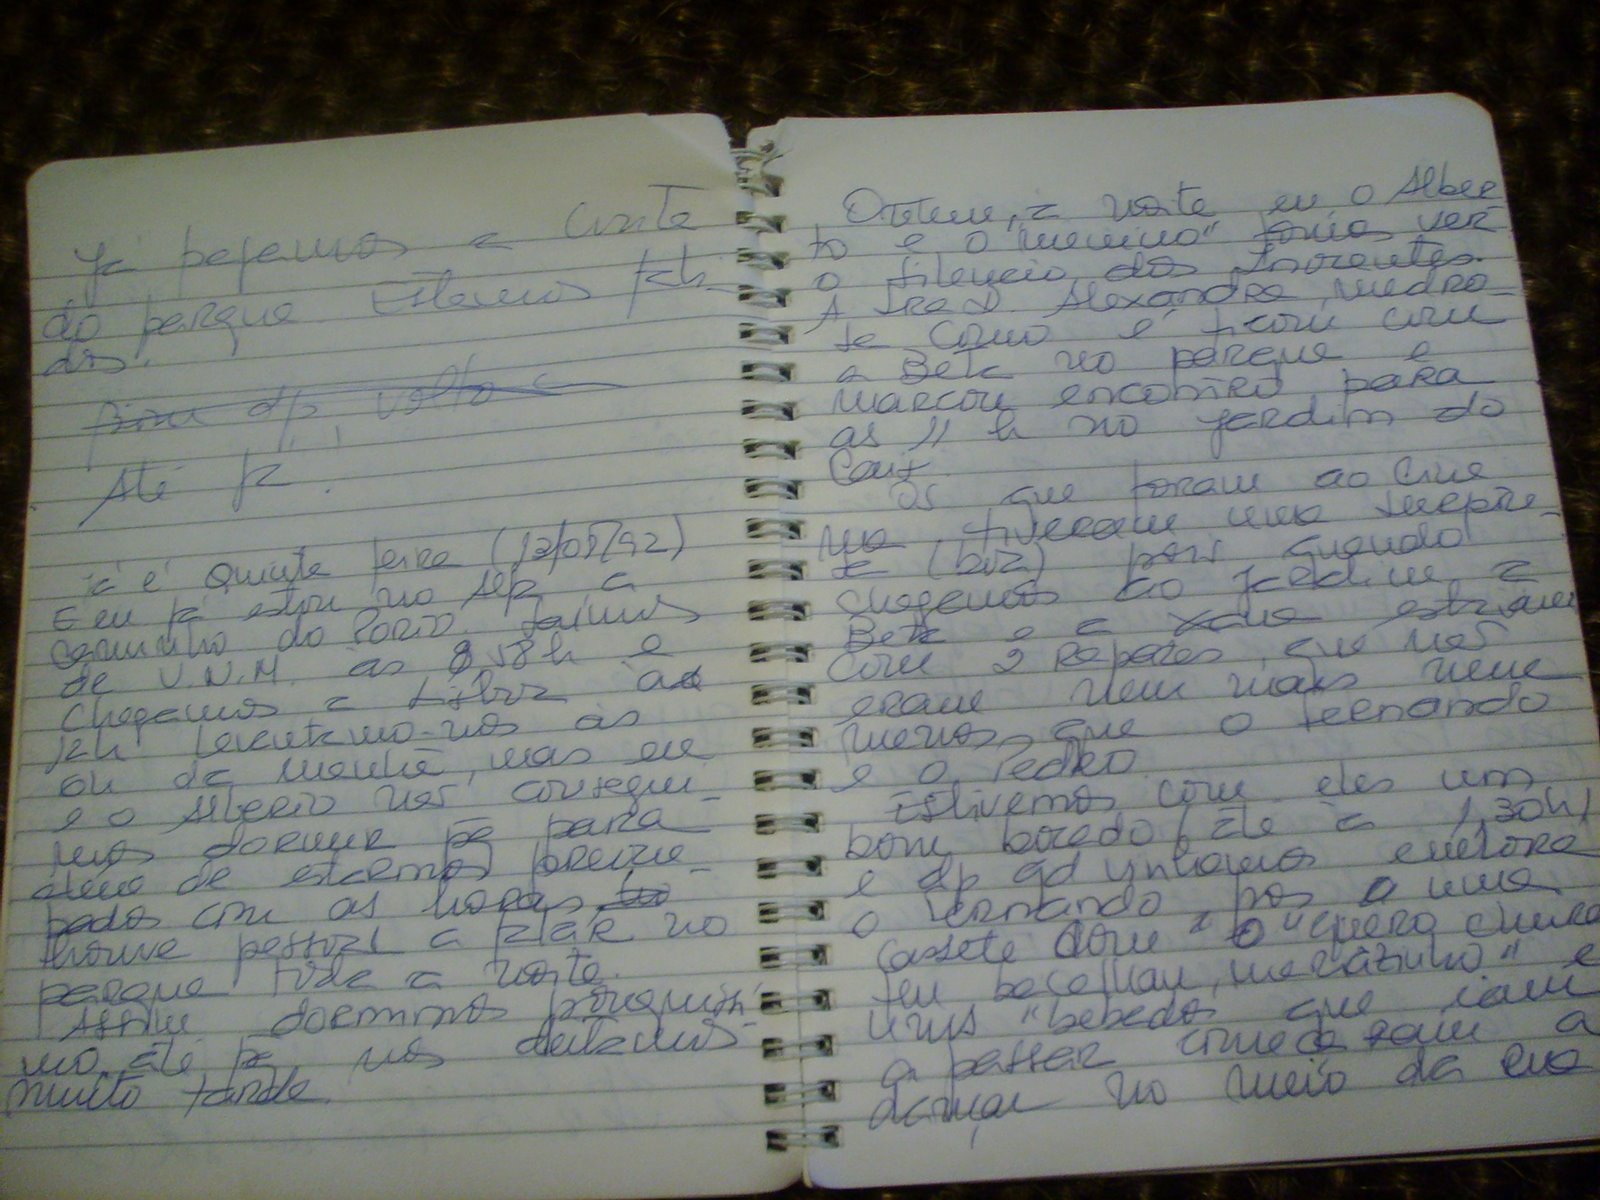 Já pagamos a conta
do parque Estamos fali
dos.
volta
Até já.
Já é Quinta feira (13/08/92)
E eu já estou no Alfa a
caminho do Porto. Saímos
de V.N.M. às 8,58h e
chegamos a Lisboa às
12h levantamo-nos às
6h da manhã, mas eu
e o Alberto não consegui-
mos dormir já para
além de estarmos preocu-
pados com as horas
houve pessoal a falar no
parque toda a noite.
Assim dormimos pouquissi-
mo. Até já nos deitamos
muito tarde.
Ontem, à noite eu o Alber
to e o "menino" fomos ver
o Silencio dos Inocentes.
A Sra D. Alexandra, medro-
sa como é ficou com
a Beta no parque e
marcou encontro para
as 11 h no jardim do
Os que foram ao cine
ma, tiveram uma surpre-
sa (boa) pois quando
chegamos ao jardim a
Beta e a Xana estavam
com 2 rapazes, que não
eram nem mais nem
menos que o Fernando
e o Pedro.
Estivemos com eles um
bom bocado (até à 1,30h)
e dp qd vinhamos embora
o Fernando pos a uma
cassete com o "quero cheirar
teu bacalhau, mariazinha" e
uns "bebedos que iam
a passar começaram a
dançar no meio da rua